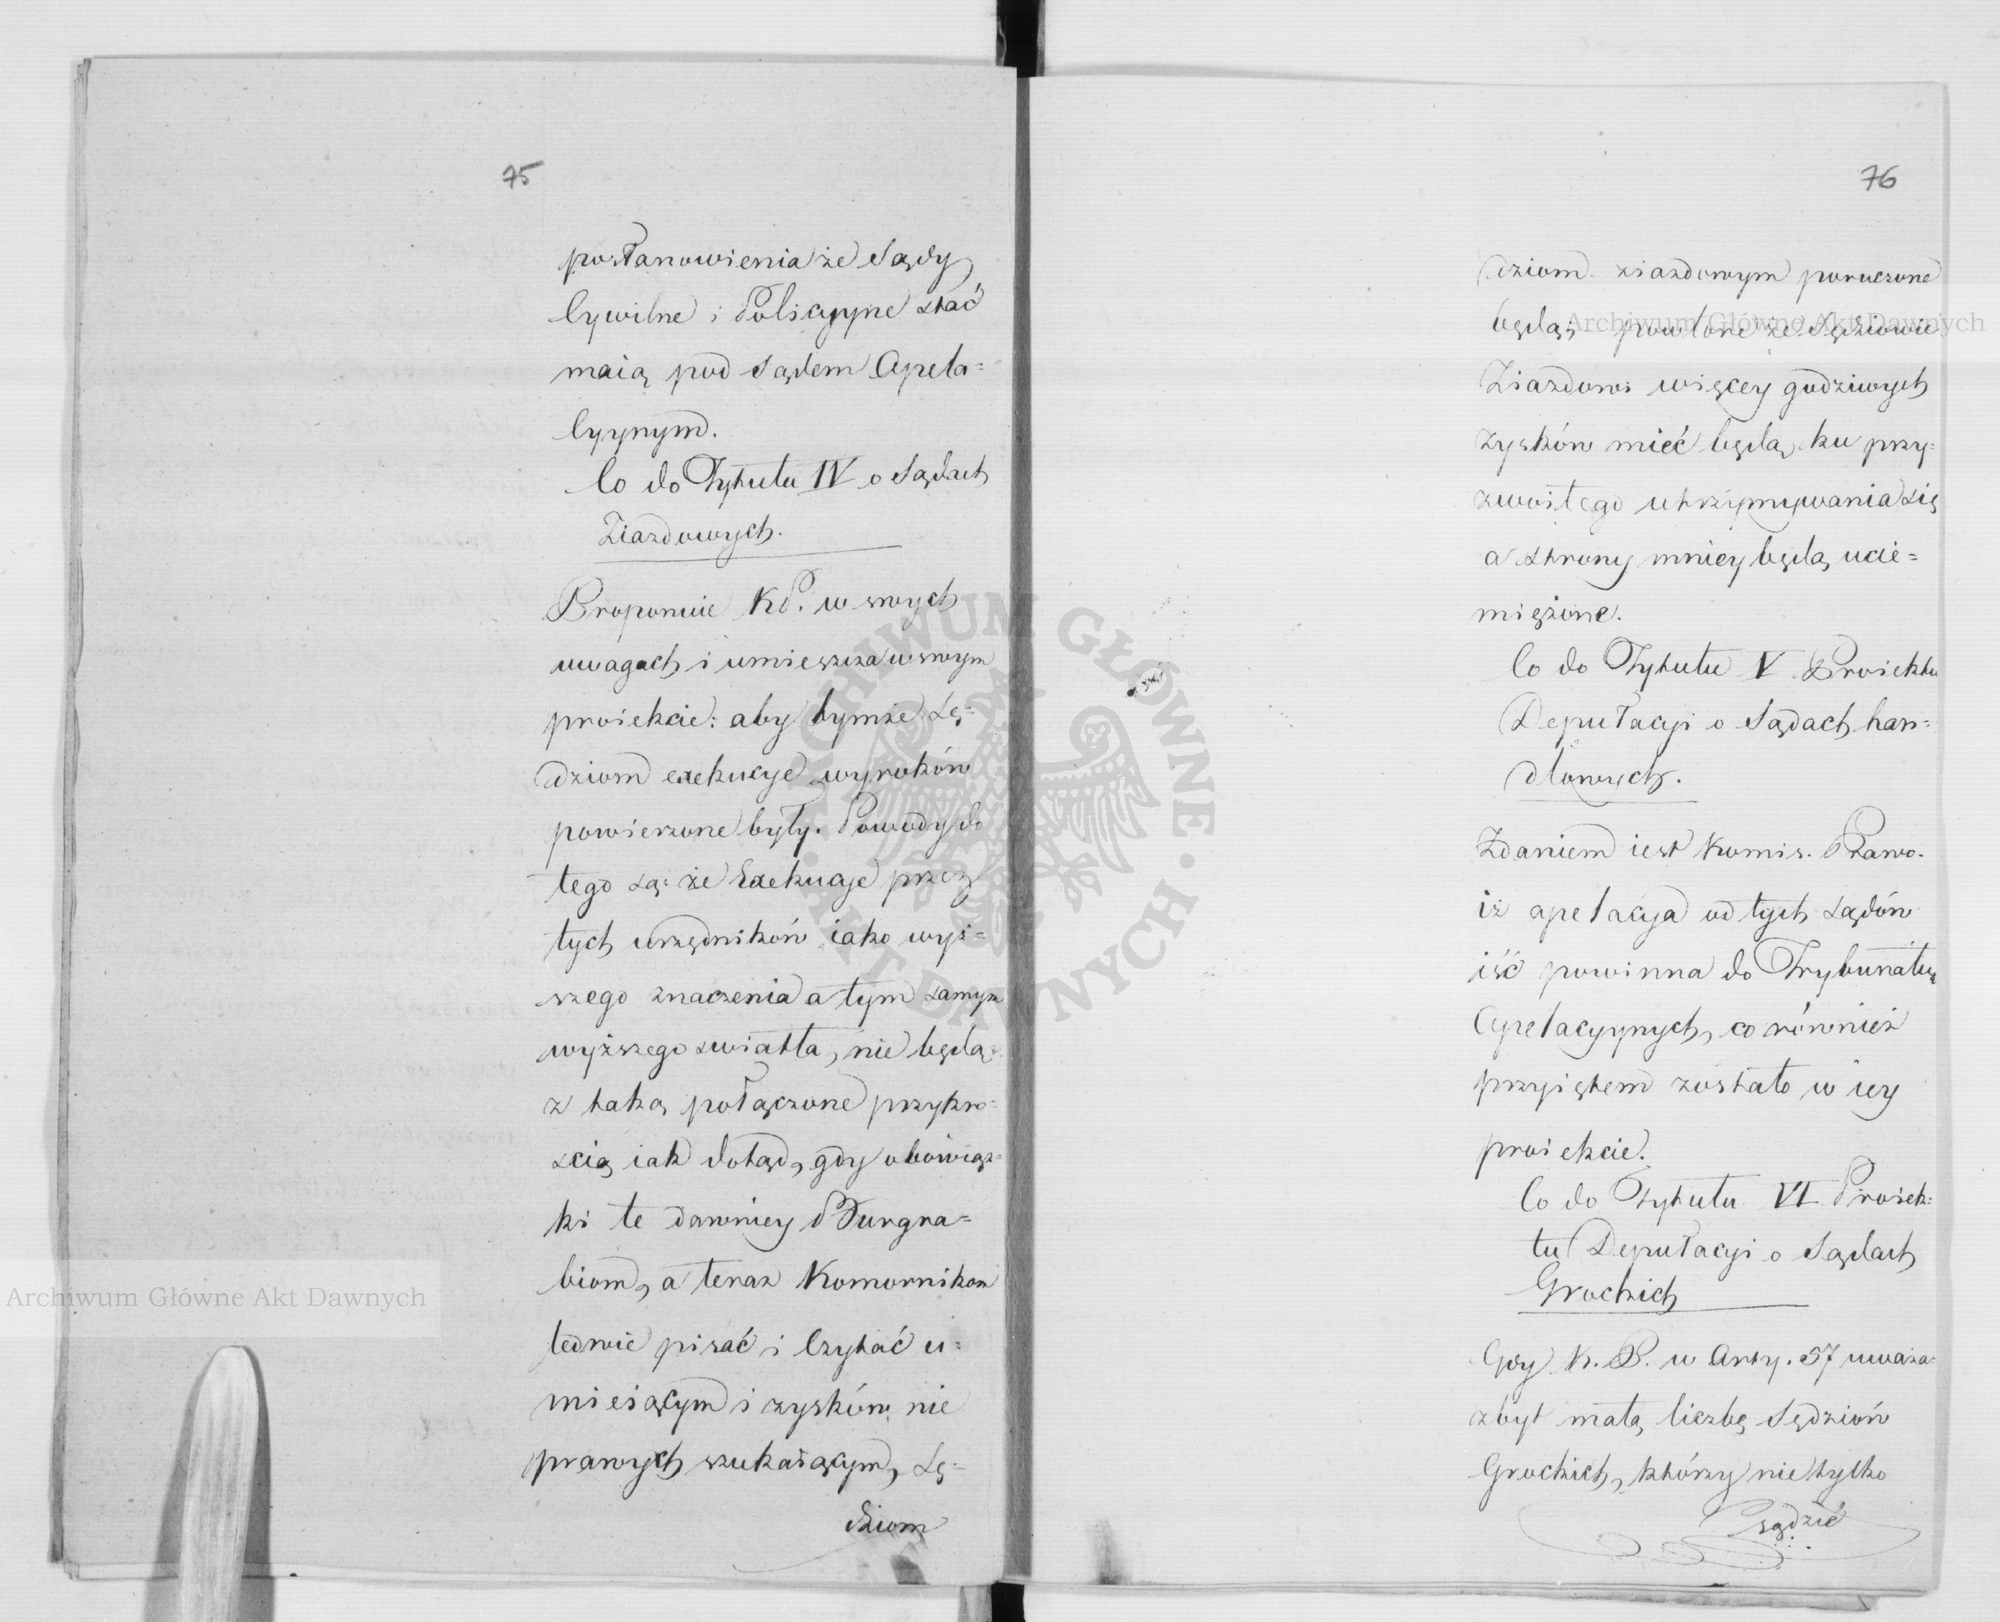 75
postanowienia że Sądy
Cywilne i Policyjne stać
maią pod Sądem Apela=
cyynym.
Co do Tytułu IV o Sądach
Ziazdowych.
Proponuie K.P. w swych
uwagach i umieszcza w swym
proiekcie: aby tymże Sę=
dziom exekucye wyroków
powierzone były. Powody do
tego są: że Exekucye przez
tych urzędników iako wyż=
szego znaczenia a tym samym
wyższego światła, nie będą
z taką połączone przykro=
ścią iak dotąd, gdy obowiąz=
ki te dawniey Burgra=
biom, a teraz Komornikom
ledwie pisać i Czytać u=
mieiącym i zysków nie
prawych szukaiącym, Sę=
dziom
76
dziom ziazdowym poruczone
będą; powtóre że Sędziowie
Ziazdowi więcey godziwych
zysków mieć będą ku przy=
zwoitego utrzymywania się
a strony mniey będą ucie=
miężone.
Co do Tytułu V Proiektu
Deputacyi o Sądach han=
dlowych.
Zdaniem iest Komis. Prawo.
iż apelacya od tych sądów
iść powinna do Trybunałów
Apelacyynych, co również
przyiętem zostało w iey
proiekcie.
Co do Tytułu VI Proiek=
tu Deputacyi o Sądach
Grodzkich
Gdy K.P. w Arty. 57 uważa
zbyt małą liczbę Sędziów
Grodzkich, którzy nie tylko
sądzić
Archiwum Główne Akt Dawnych
Archiwum Główne Akt Dawnych
ARCHIWUM GŁÓWNE AKT DAWNYCH